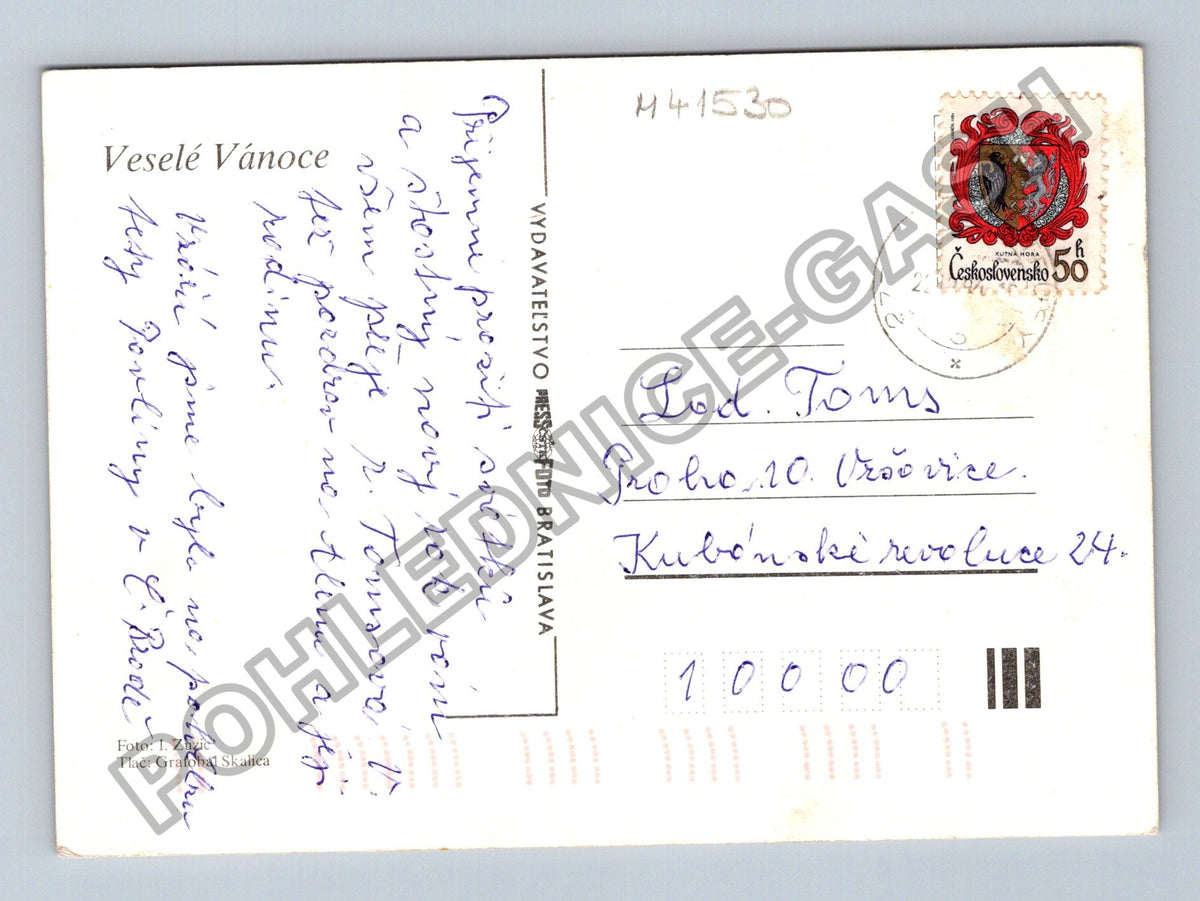 Veselé Vánoce
Příjemné prožití svátků
a šťastný nový rok vám
všem přeje r. Tomsová. V.
též pozdrav na Alenu a její
rodinu.
Včera jsme byla na pohřbu
tety Pavlíny v Č. Brodě
Foto: I. Zuzic
Tlač: Grafobal Skalica
VYDAVATEĽSTVO PRESSFOTO BRATISLAVA
ČSTK
M 41530
KUTNÁ HORA
Československo 50 h
Lad. Toms
Praha 10. Vršovice.
Kubánské revoluce 24.
1 0 0 0 0
POHLEDNICE-GASH